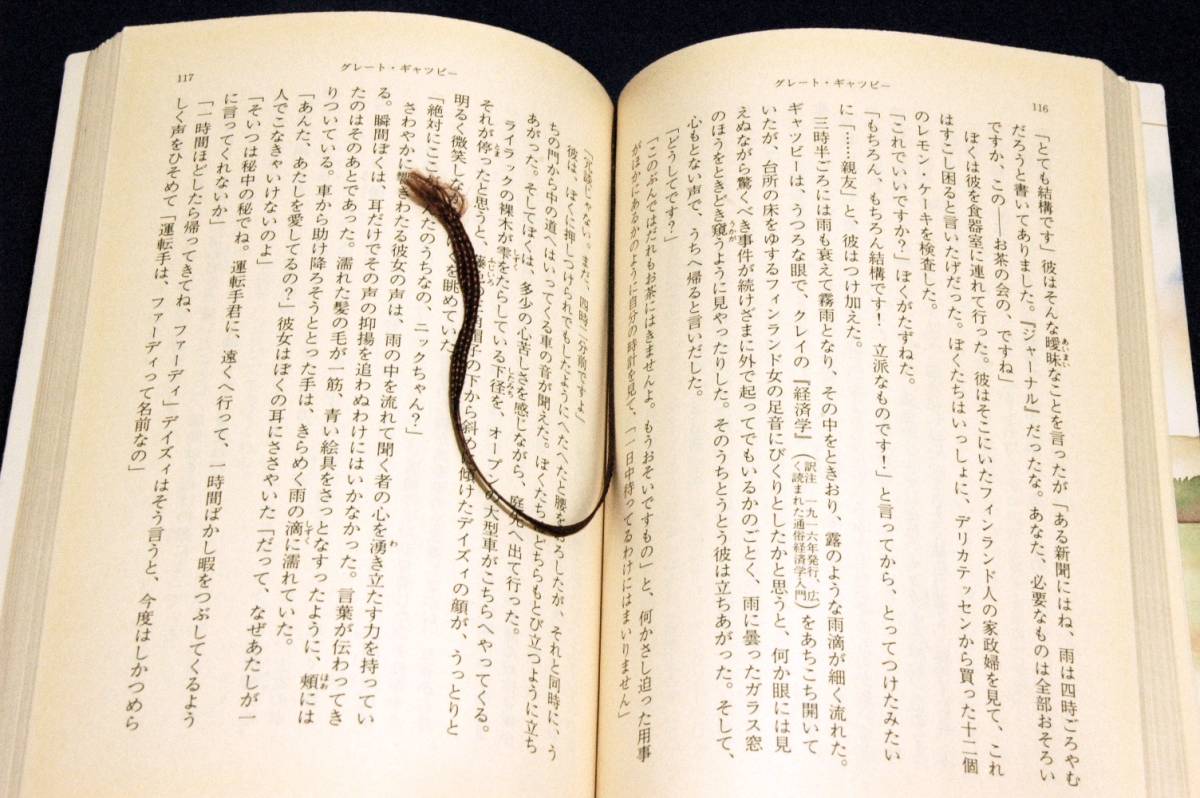 グレート・ギャツビー
116
「とても結構です」彼はそんな曖昧なことを言ったが「ある新聞にはね、雨は四時ごろやむ
だろうと書いてありました。『ジャーナル』だったな。あなた、必要なものは全部おそろい
ですか、この――お茶の会の、ですね」
ぼくは彼を食器室に連れて行った。彼はそこにいたフィンランド人の家政婦を見て、これ
はすこし困ると言いたげだった。ぼくたちはいっしょに、デリカテッセンから買った十二個
のレモン・ケーキを検査した。
「これでいいですか？」ぼくがたずねた。
「もちろん、もちろん結構です！　立派なものです！」と言ってから、とってつけたみたい
に「……親友」と、彼はつけ加えた。
三時半ごろには雨も衰えて霧雨となり、その中をときおり、露のような雨滴が細く流れた。
ギャツビーは、うつろな眼で、クレイの『経済学』（訳注　一九一六年発行、広く読まれた通俗経済学入門）をあちこち開いて
いたが、台所の床をゆするフィンランド女の足音にびくりとしたかと思うと、何か眼には見
えぬながら驚くべき事件が続けざまに外で起ってでもいるかのごとく、雨に曇ったガラス窓
のほうをときどき窺うように見やったりした。そのうちとうとう彼は立ちあがった。そして、
心もとない声で、うちへ帰ると言いだした。
「どうしてです？」
「このぶんではだれもお茶にはきませんよ。もうおそいですもの」と、何かさし迫った用事
がほかにあるかのように自分の時計を見て、「一日中待ってるわけにはまいりません」
グレート・ギャツビー
117
「冗談じゃない。まだ、四時二分前ですよ」
彼は、ぼくに押しつけられでもしたようにへたへたと腰をおろしたが、それと同時に、う
ちの門から中の道へはいってくる車の音が聞えた。ぼくたちはどちらもとび立つように立ち
あがった。そしてぼくは、多少の心苦しさを感じながら、庭先へ出て行った。
ライラックの裸木が雫をたらしている下径を、オープンの大型車がこちらへやってくる。
それが停ったと思うと、藤色の 帽子の下から斜めに傾けたデイズィの顔が、うっとりと
明るく微笑しな を眺めていた。
「絶対にここ たのうちなの、ニックちゃん？」
さわやかに響きわたる彼女の声は、雨の中を流れて聞く者の心を湧き立たす力を持ってい
る。瞬間ぼくは、耳だけでその声の抑揚を追わぬわけにはいかなかった。言葉が伝わってき
たのはそのあとであった。濡れた髪の毛が一筋、青い絵具をさっとなすったように、頬には
りついている。車から助け降ろそうととった手は、きらめく雨の滴に濡れていた。
「あんた、あたしを愛してるの？」彼女はぼくの耳にささやいた「だって、なぜあたしが一
人でこなきゃいけないのよ」
「そいつは秘中の秘でね。運転手君に、遠くへ行って、一時間ばかし暇をつぶしてくるよう
に言ってくれないか」
「一時間ほどしたら帰ってきてね、ファーディ」デイズィはそう言うと、今度はしかつめら
しく声をひそめて「運転手は、ファーディって名前なの」